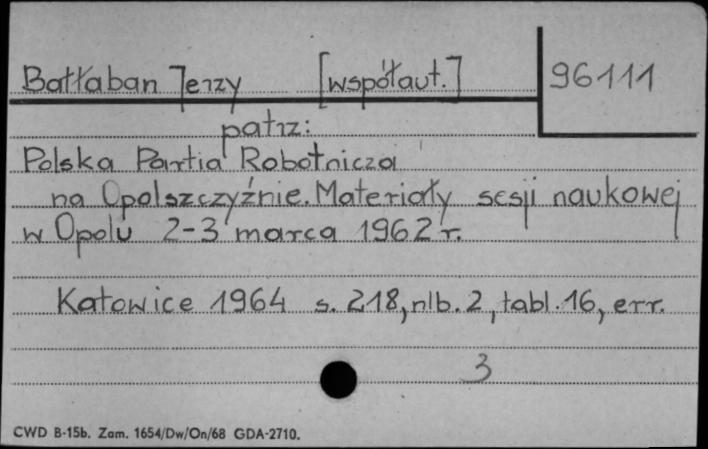 Bałłaban Jerzy [współaut.] 96111
patrz:
Polska Partia Robotnicza
na Opolszczyźnie. Materiały sesji naukowej
w Opolu 2-3 marca 1962 r.
Katowice 1964 s. 218, nlb. 2, tabl. 16, err.
3
CWD B-15b. Zam. 1654/Dw/On/68 GDA-2710.